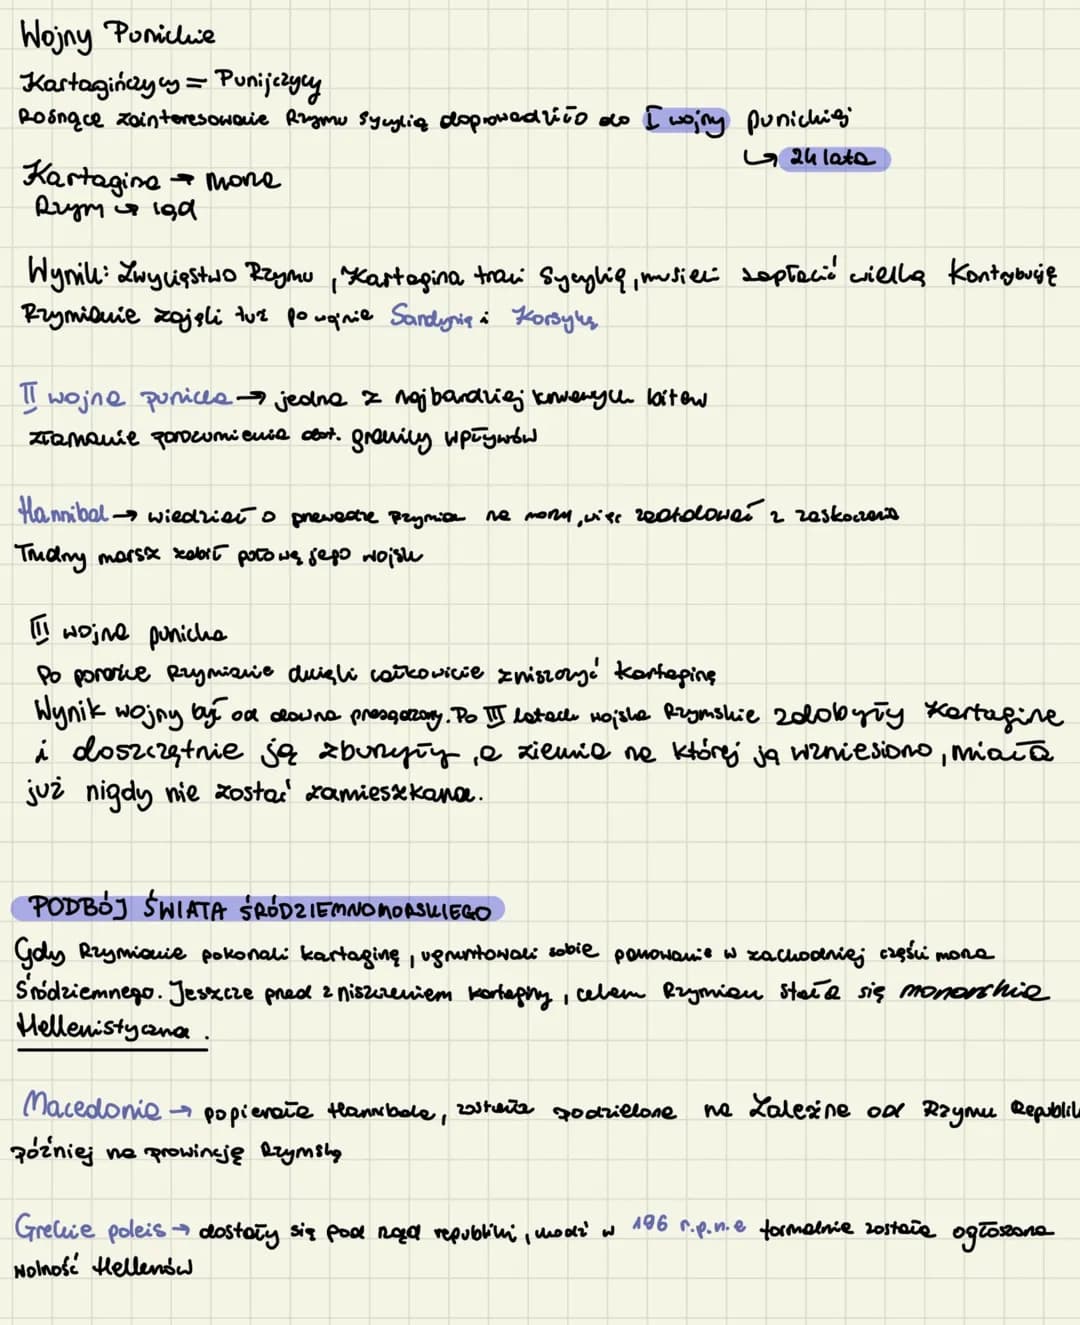 Wojny Punickie
Kartagińczycy = Punijczycy
Rosnące zainteresowanie Rzymu Sycylią doprowadziło do I wojny punickiej
↳ 24 lata
Kartagina → morze
Rzym ↳ ląd
Wynik: Zwycięstwo Rzymu, Kartagina traci Sycylię, musieli zapłacić wielką Kontrybucję
Rzymianie zajęli tuż po wojnie Sardynię i Korsykę
II wojna punicka → jedna z najbardziej krwawych bitew
złamanie porozumienia dot. granicy wpływów
Hannibal → wiedział o przewadze Rzymian na morzu, więc zaatakował z zaskoczenia
Trudny marsz zabił połowę jego wojsk
III wojna punicka
Po porażce Rzymianie chcieli całkowicie zniszczyć kartaginę
Wynik wojny był od dawna przesądzony. Po III latach wojska Rzymskie zdobyły Kartaginę
i doszczętnie ją zburzyły, a ziemia na której ją wzniesiono, miała
już nigdy nie zostać zamieszkana.
PODBÓJ ŚWIATA ŚRÓDZIEMNOMORSKIEGO
Gdy Rzymianie pokonali kartaginę, ugruntowali sobie panowanie w zachodniej części morza
Śródziemnego. Jeszcze przed zniszczeniem kartaginy, celem Rzymian stała się monarchia
Hellenistyczna.
Macedonia → popierała Hannibala, została podzielona na Zależne od Rzymu Republik
później na prowincję Rzymską
Greckie poleis → dostały się pod rząd republiki, choć w 196 r.p.n.e formalnie została ogłoszona
Wolność Hellenów